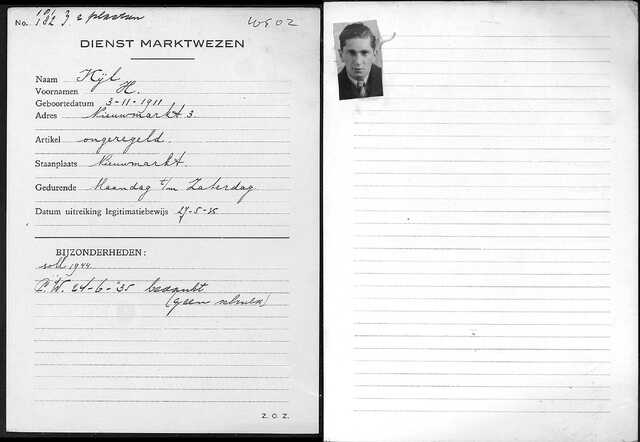 No. 181 182 J. 2 plaatsen
W802
DIENST MARKTWEZEN
Naam Kÿl
Voornamen H.
Geboortedatum 3-11-1911
Adres Nieuwmarkt 3
Artikel ongeregeld.
Staanplaats Nieuwmarkt.
Gedurende Maandag t/m Zaterdag
Datum uitreiking legitimatiebewijs 27-5-35
BIJZONDERHEDEN:
soll 1944
C.W. 24-6-'35 bedankt
(geen
Z.O.Z.